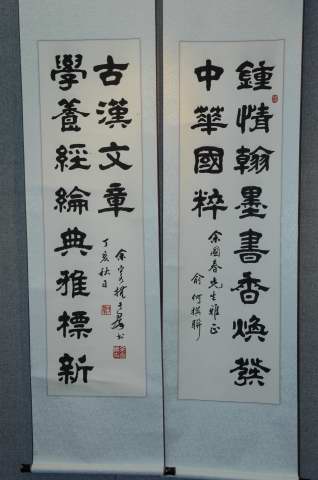 鍾情翰墨書香煥發
中華國粹
余國春先生雅正
學養經綸典雅標新
古漢文章
丁亥秋日